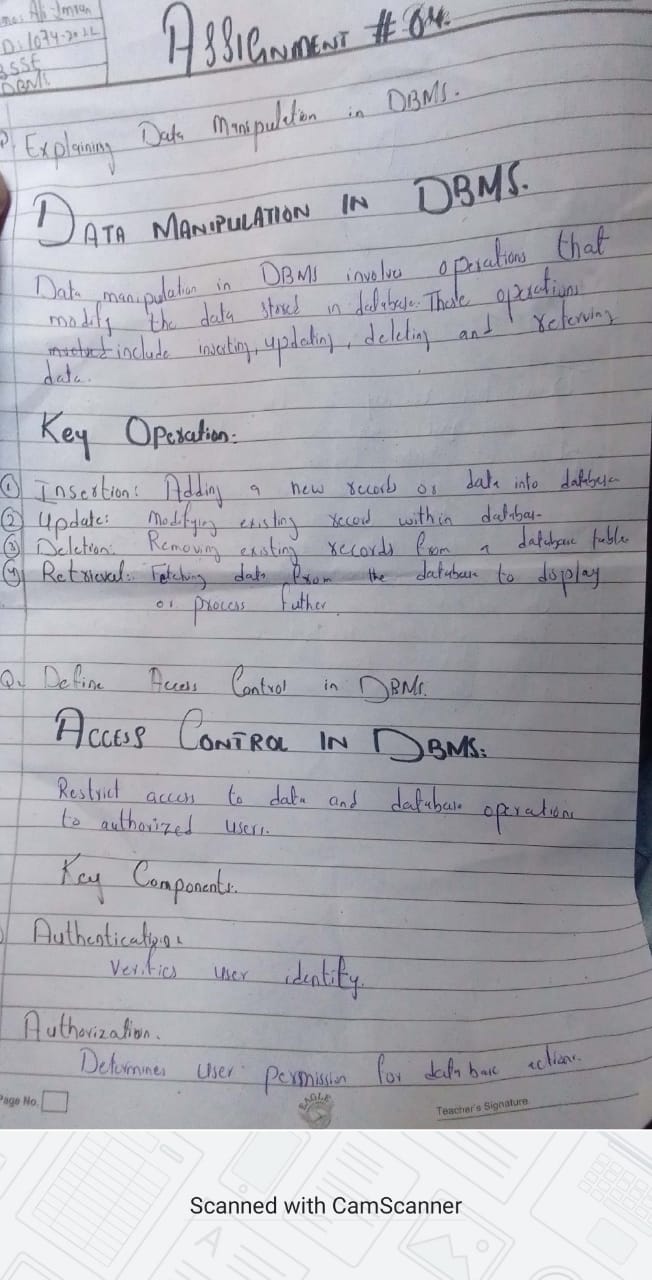 Ali Imran
ID: 1074-2022
BSSE
DBMS
ASSIGNMENT # 04.
Explaining Data Manipulation in DBMS.
DATA MANIPULATION IN DBMS.
Data manipulation in DBMS involves operations that
modify the data stored in database. These operations
include inserting, updating, deleting and referving
data.
Key Operation:
① Insertion: Adding a new records or data into database
② Update: Modifying existing record within databas-
③ Deletion: Removing existing records from a database table
④ Retrieval: Fetching data from the database to display
or process futher
Q. Define Access Control in DBMS.
ACCESS CONTROL IN DBMS:
Restrict access to data and database operations
to authorized users.
Key Components:
Authentication:
Verifies user identity.
Authorization.
Determines user permission for data base actions.
Page No.
EAGLE
Teacher's Signature
Scanned with CamScanner